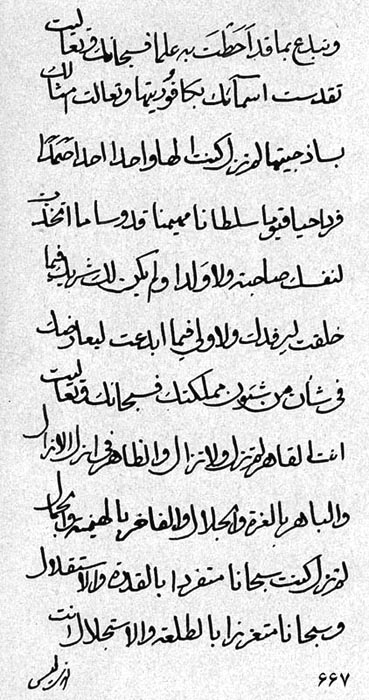 وتبدع بما قد احطت به علما فسبحانك وتعاليت
تقدست اسمآئك بكافوريتها وتعالت امثالك
بساذجيتها لم تزل كنت الها واحدا احدا صمدا
فردا حيا قيوما سلطانا مهيمنا قدوسا ما اتخذت
لنفسك صاحبة ولا ولدا ولم يكن لك شريك فيما
خلقت ليرفدك ولا ولي فيما ابدعت ليعاضدك
في شأن من شئون مملكتك فسبحانك وتعاليت
انت القاهر لم تزل ولا تزال والظاهر في ازل الازال
والباهر بالعزة والجلال والفاخر بالهيمنة والجمال
لم تزل كنت سبحانا متفردا بالقدرة والاستقلال
وسبحانا متعززا بالطلعة والاستجلال انت
۶۶۷